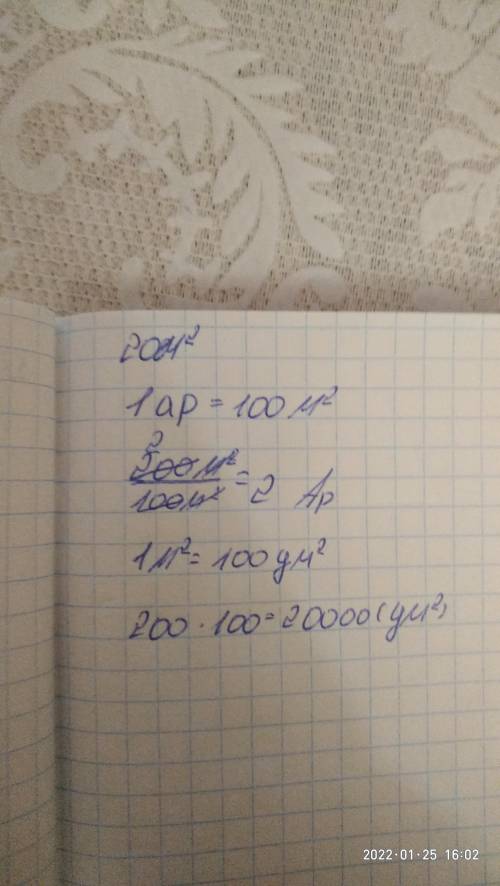 200м²
1 ар = 100 м²
2
200 м²
100м² = 2 Ар
1 м² = 100 дм²
200 · 100 = 20000 (дм²)
2022·01·25 16:02